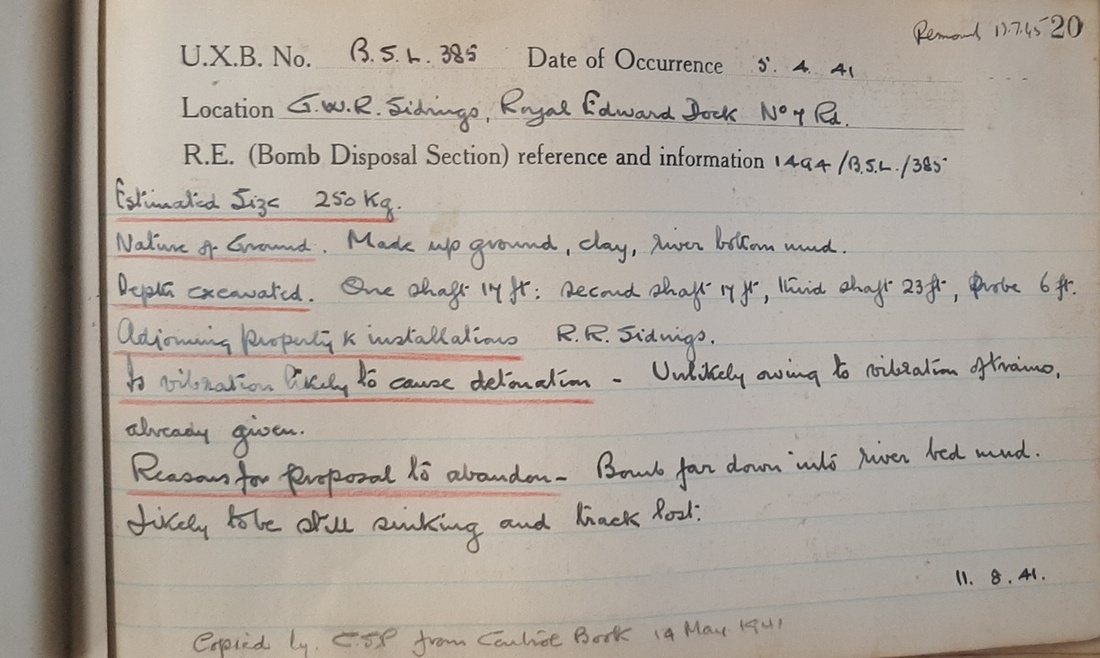 17.7.45 20
U.X.B. No. B.S.L. 385 Date of Occurrence 5. 4. 41
Location G.W.R. Sidings, Royal Edward Dock No 7 Rd.
R.E. (Bomb Disposal Section) reference and information 1494/B.S.L./385
Estimated Size 250 Kg.
Nature of Ground. Made up ground, clay, river bottom mud.
Depth excavated. One shaft 17 ft: second shaft 17 ft, third shaft 23 ft, Probe 6 ft.
Adjoining property & installations R.R. Sidings.
Is vibration likely to cause detonation - Unlikely owing to vibration of trains,
already given.
Reasons for proposal to abandon - Bomb far down into river bed mud.
Likely to be still sinking and track lost.
11. 8. 41.
Copied by from Book 14 May 1941